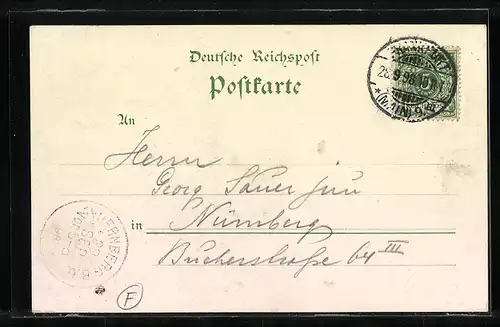 Deutsche Reichspost
Postkarte
An
Herrn
Georg Sauer jun
in Nürnberg
Bucherstraße 64 III
NUERNBERG
SEP
F